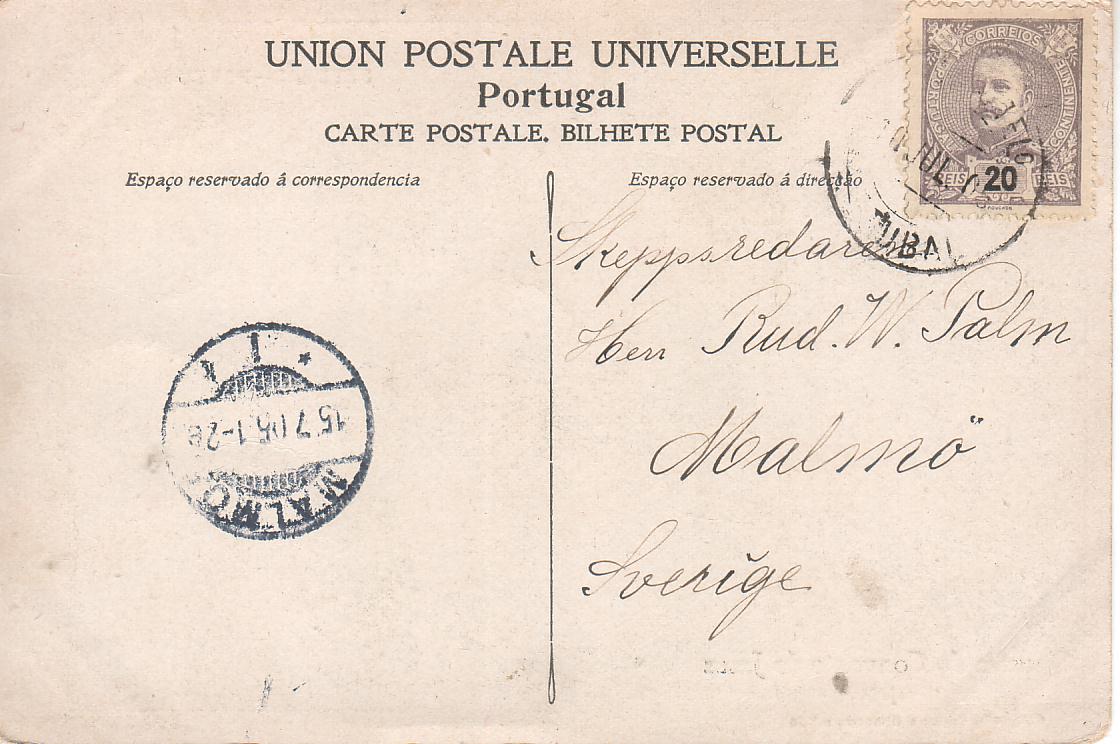 UNION POSTALE UNIVERSELLE
Portugal
CARTE POSTALE. BILHETE POSTAL
Espaço reservado á correspondencia
Espaço reservado á direcção
CORREIOS
PORTUGAL
CONTINENTE
REIS 20 REIS
MOUCHON
JUL
Skeppsredaren
Herr Rud. W. Palm
Malmö
Sverige
15.7.05.1-2
MALMÖ